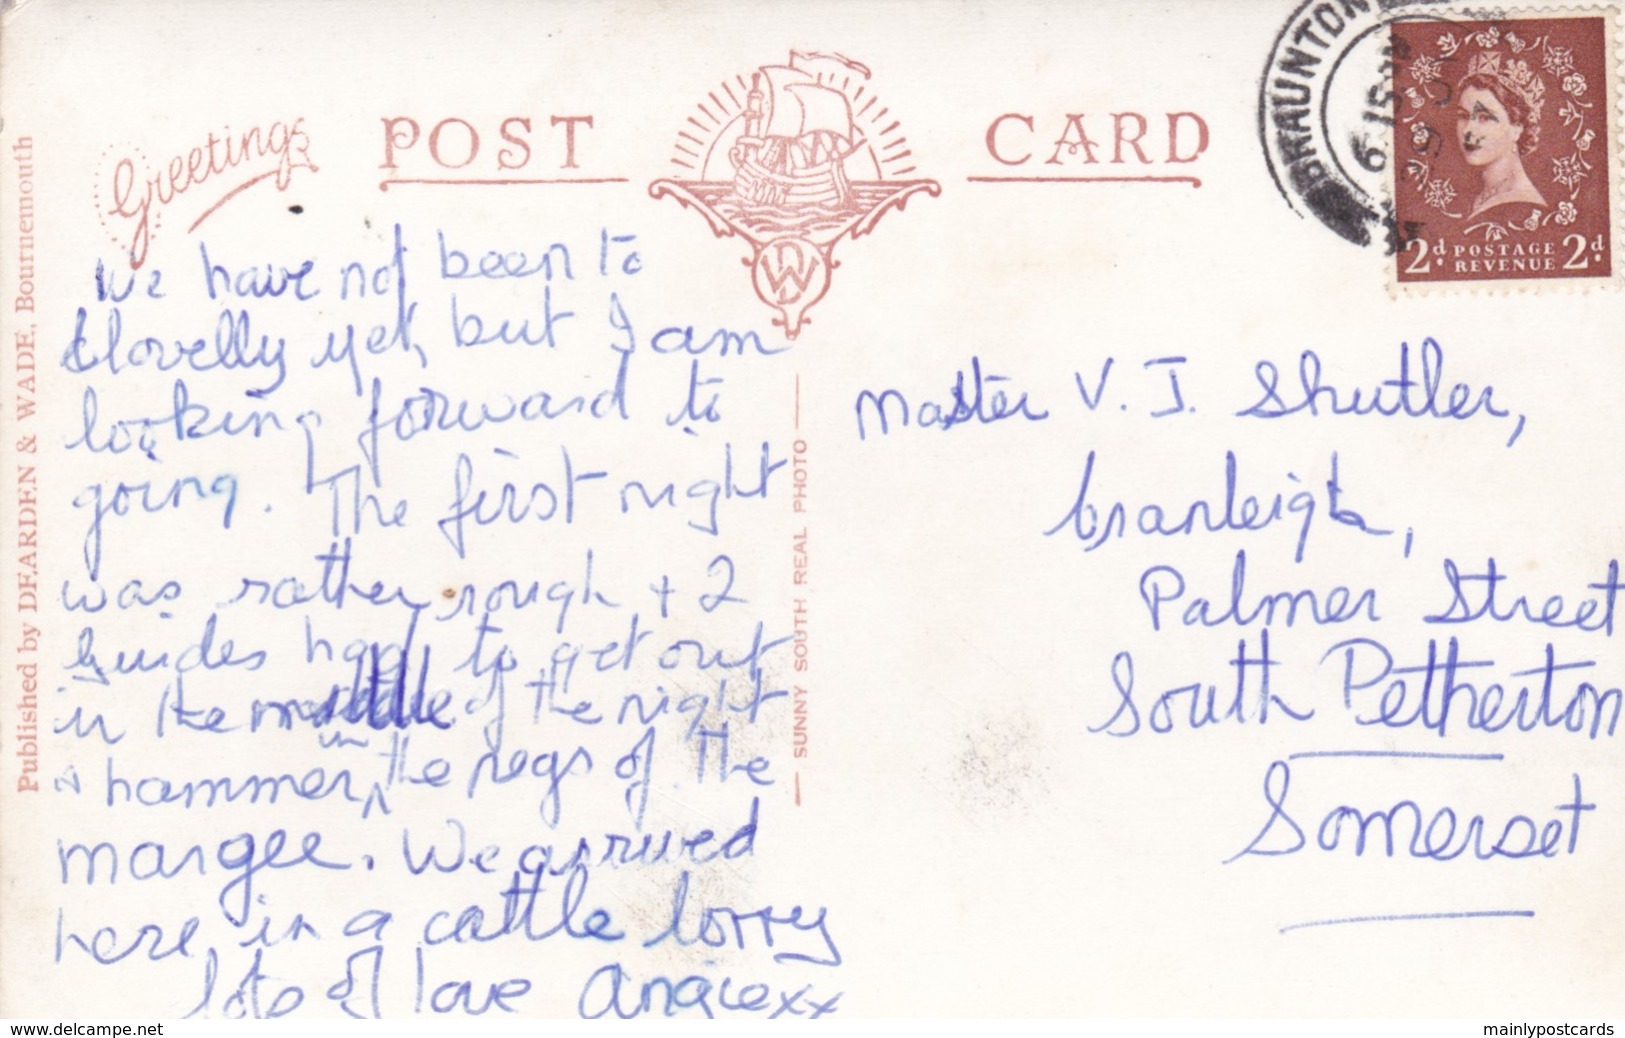 Greetings
POST CARD
DW
Published by DEARDEN & WADE, Bournemouth
SUNNY SOUTH REAL PHOTO
BRAUNTON
6.15 PM
2d. POSTAGE REVENUE 2d.
We have not been to
Clovelly yet, but I am
looking forward to
going. The first night
was rather rough + 2
Guides had to get out
in the middle of the night
& hammer in the pegs of the
margee. We arrived
here in a cattle lorry
lots of love Angie xx
Master V. J. Shutler,
Cranleigh,
Palmer Street
South Petherton
Somerset
www.delcampe.net
mainlypostcards